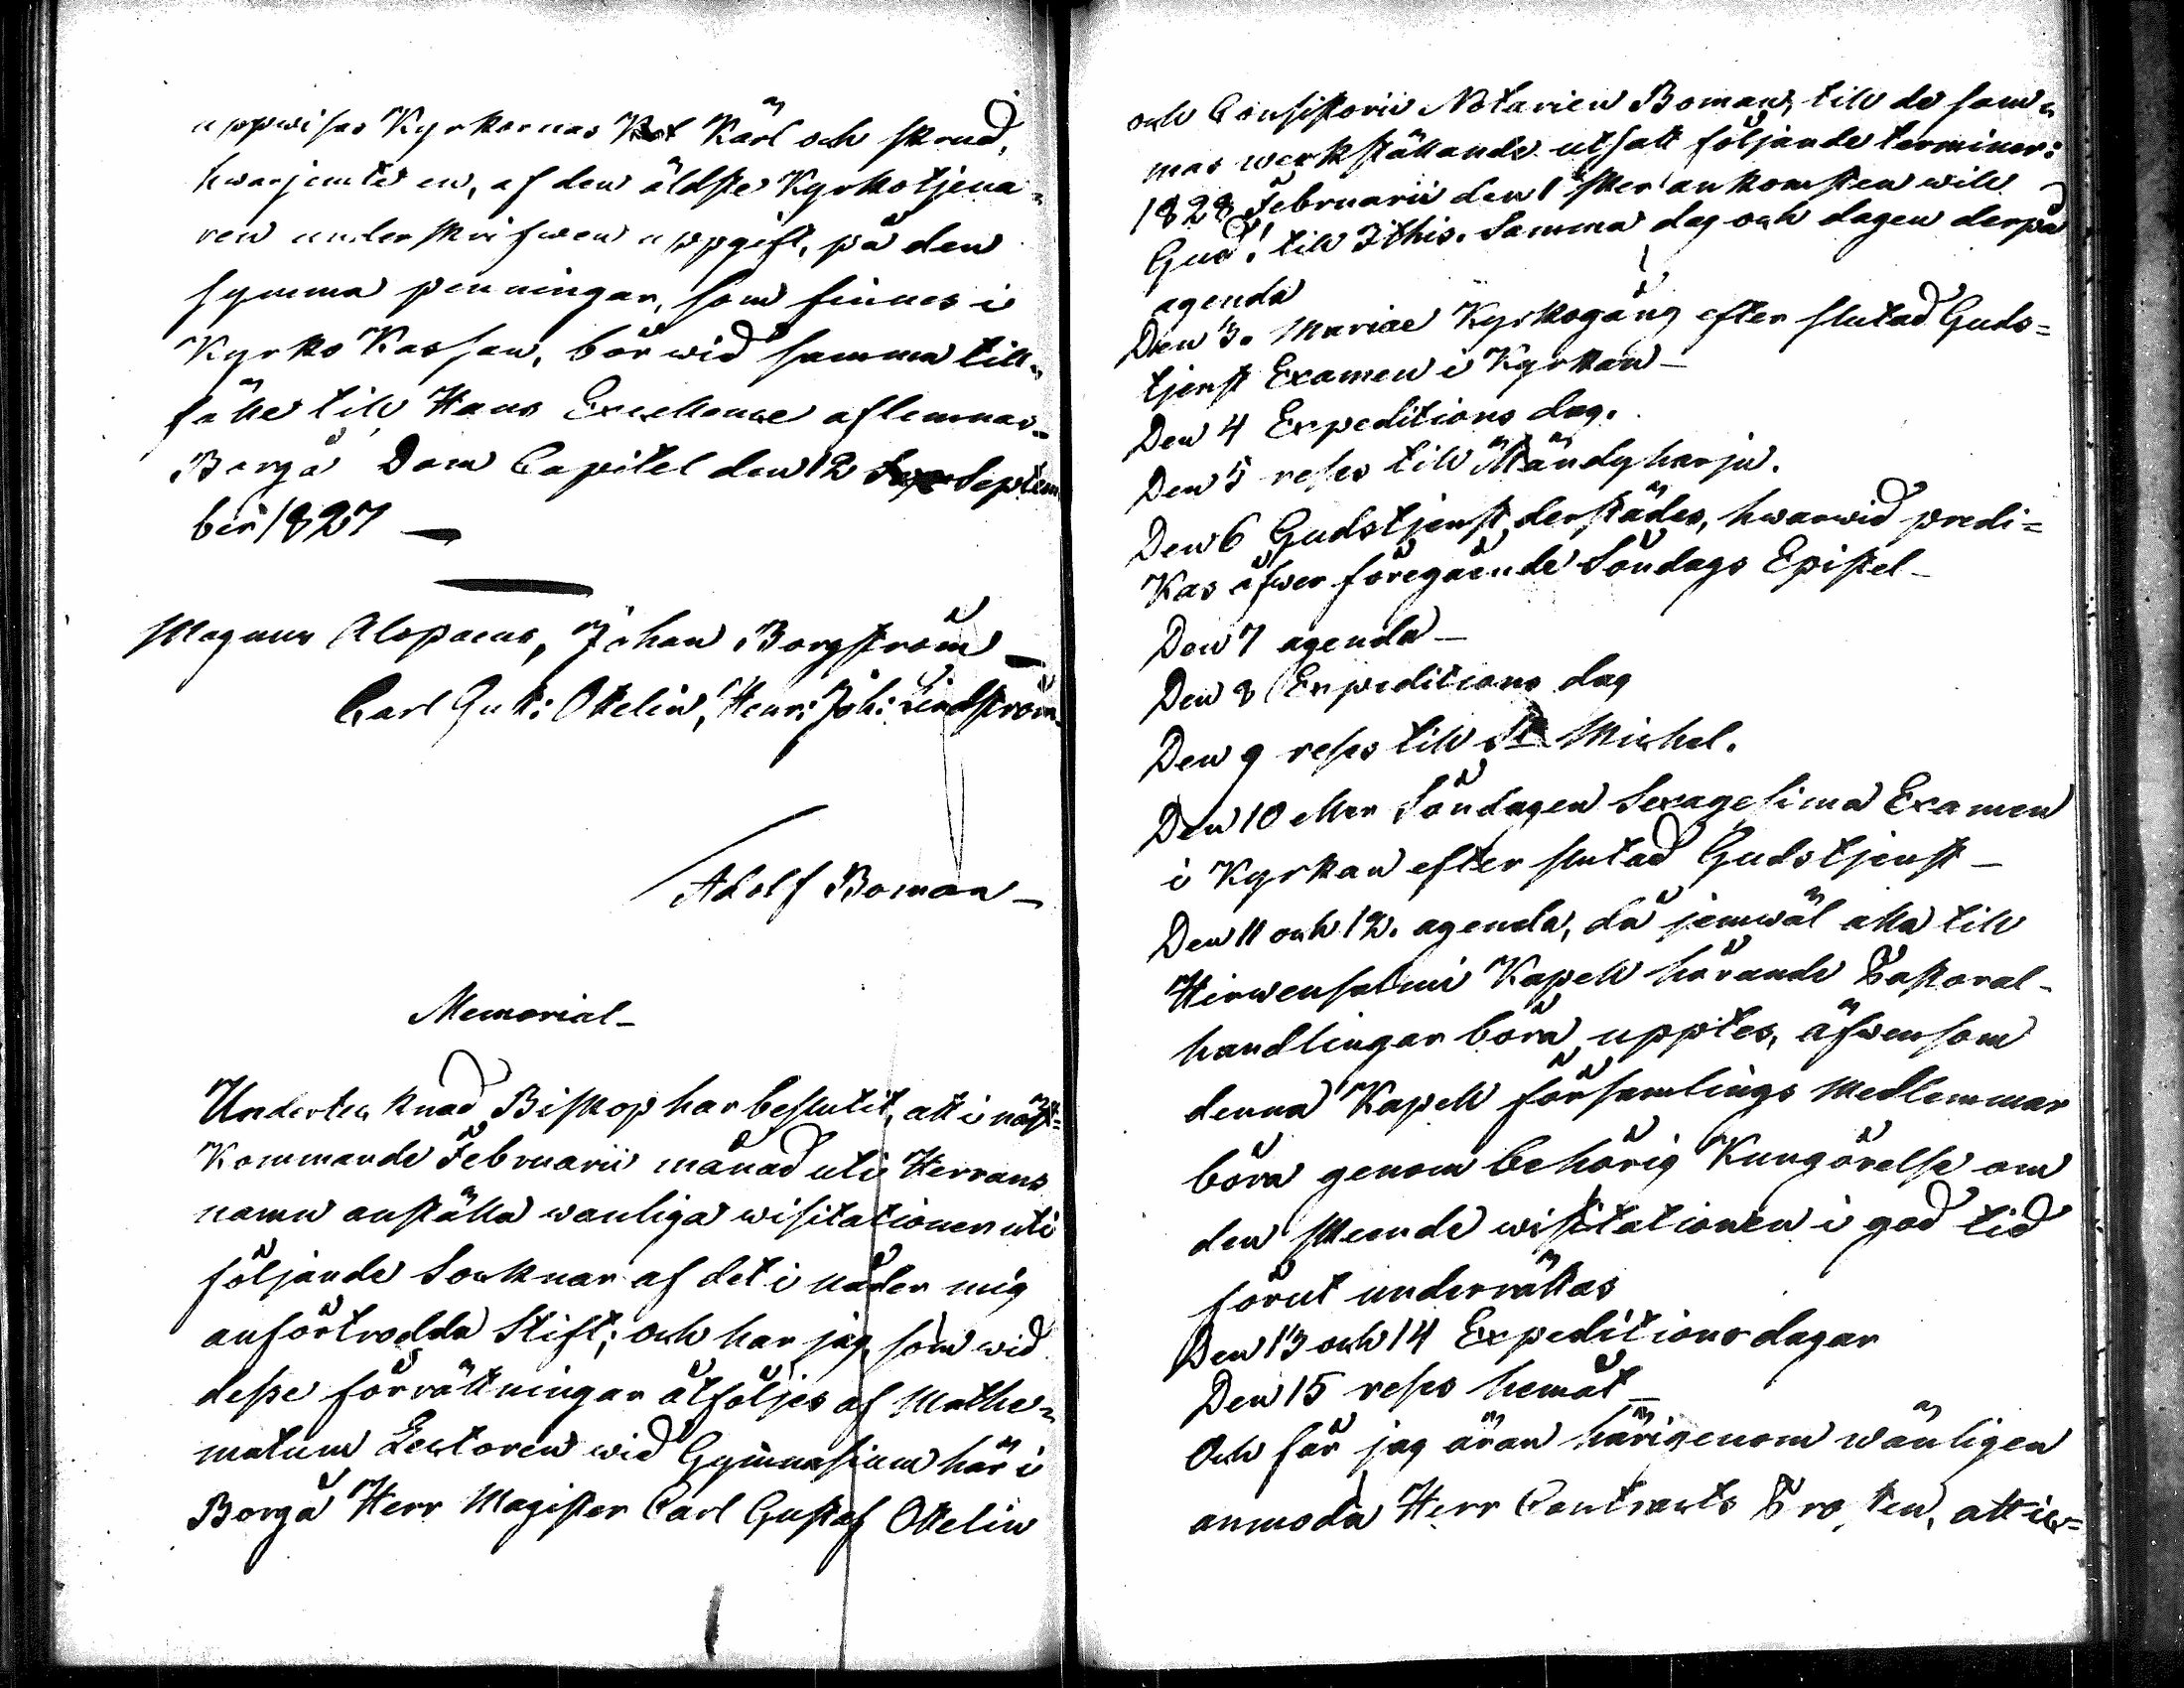 uppwisas Kyrkornas Kärl och skrud,
hwarjemte en, af den äldste Kyrkotjena=
ren underskrifwen uppgift, på den
summa penningar, som finnes i
Kyrko Kassan, bör wid samma till=
fälle till Hans Excellence aflemnas.
Borgå Dom Capitel den 12 Septem
ber 1827 —
Magnus Alopaeus, Johan Borgström —
Carl Gust: Ottelin, Henr: Joh: Lindström
Adolf Boman —
Memorial —
Undertecknad Biskop har beslutit, att i näst=
Kommande Februarii månad uti Herrans
namn anställa wanliga wisitationer uti
följande Socknar af det i nåder mig
anförtrodda Stift; och har jag, som wid
desse förrättningar åtföljes af Mathe=
matum Lectoren wid Gymnasium här i
Borgå Herr Magister Carl Gustaf Ottelin
och Consistorii Notarien Boman, till de sam=
mas werkställande utsatt följande terminer:
1828 Februarii den 1 sker ankomsten will
Gud! till Itthis. Samma dag och dagen derpå
agenda
Den 3. Mariae Kyrkogång efter slutad Guds=
tjenst Examen i Kyrkan —
Den 4 Expeditions dag.
Den 5 reses till Mändyharju.
Den 6 Gudstjenst derstädes, hwarwid predi=
Kas öfwer föregående Söndags Epistel —
Den 7 agenda —
Den 8 Expeditions dag
Den 9 reses till St Michel.
Den 10 eller Söndagen Sexagesima Examen
i Kyrkan efter slutad Gudstjenst —
Den 11 och 12. agenda, då jemwäl alla till
Hirwensalmi Kapell hörande Pastoral-
handlingar böra upptes, äfwensom
denna Kapell församlings Medlemmar
böra genom behörig Kungörelse om
den skeende wisitationen i god tid
förut underrättas
Den 13 och 14 Expeditions dagar
Den 15 reses hemåt —
Och får jag äran härigenom wänligen
anmoda Herr Contracts Prosten, att i=